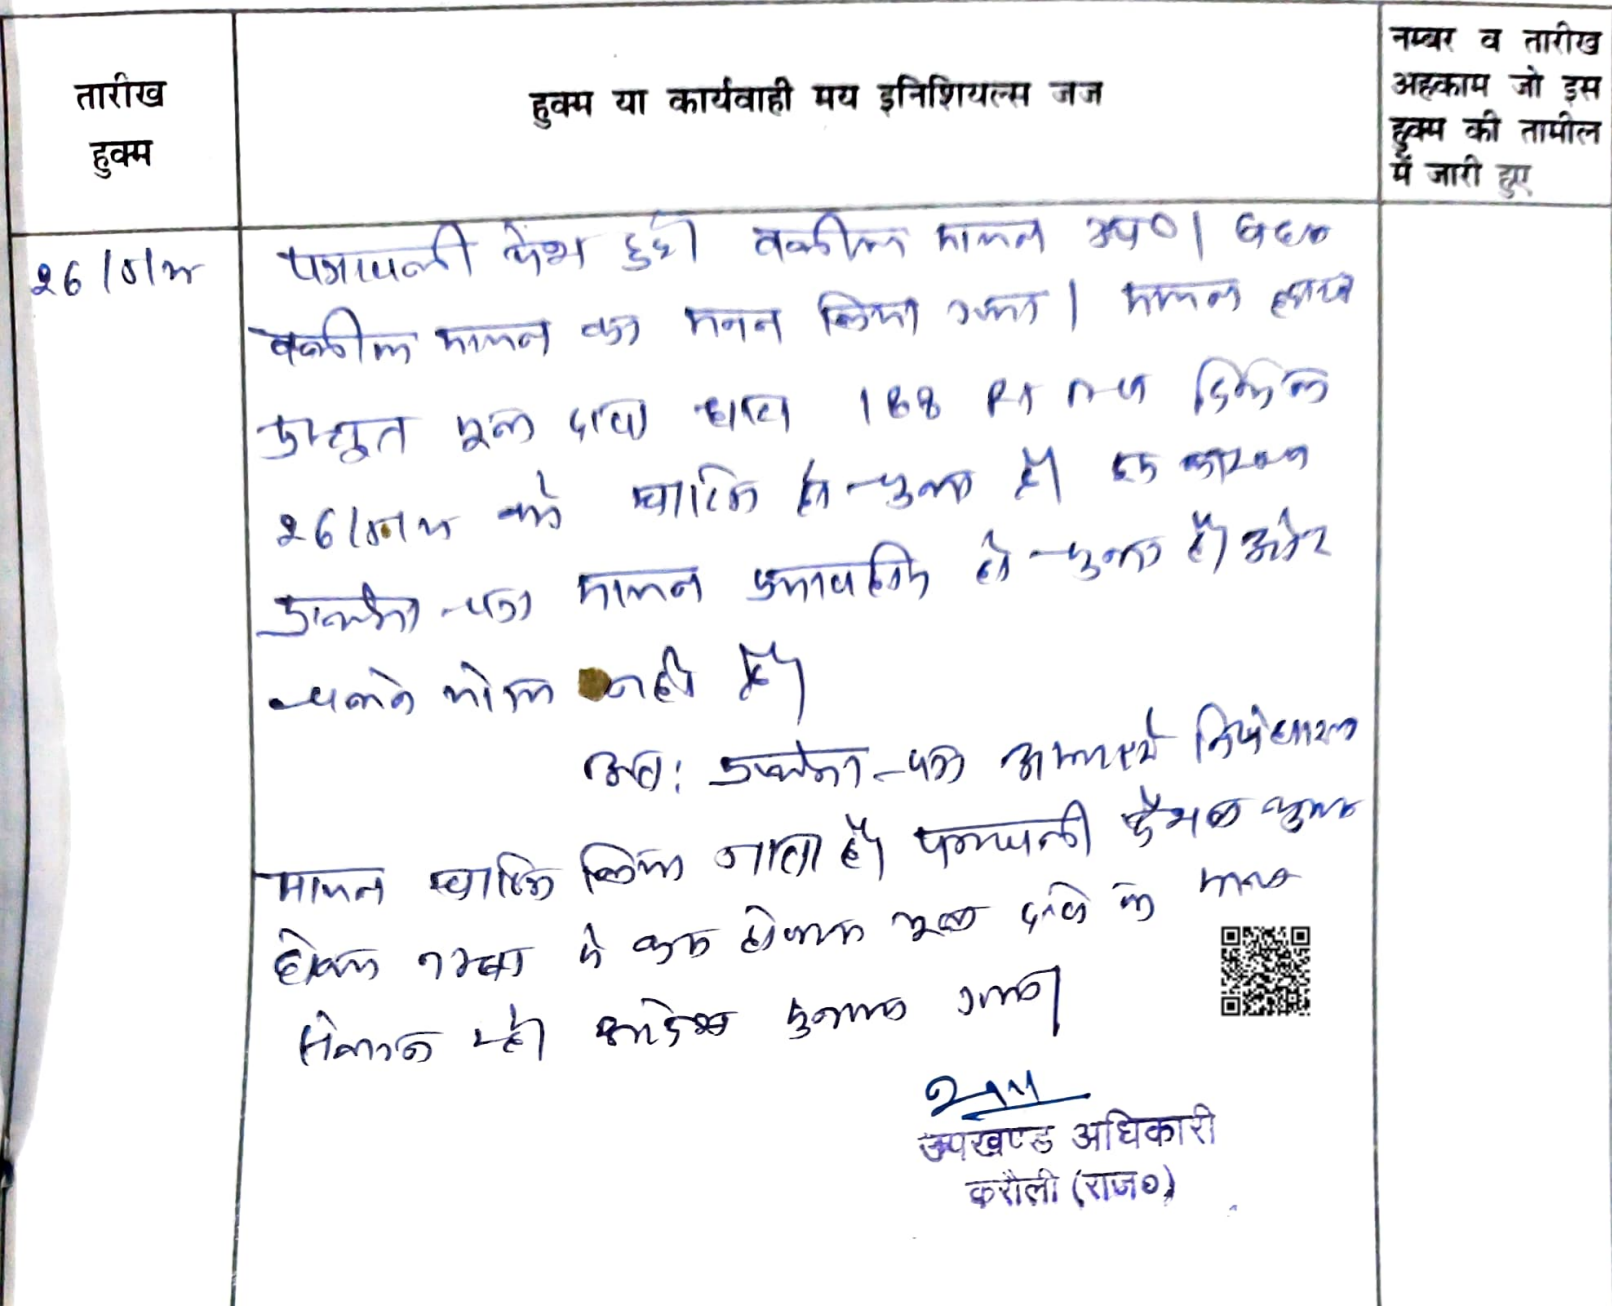 तारीख
हुक्म
हुक्म या कार्यवाही मय इनिशियल्स जज
नम्बर व तारीख
अहकाम जो इस
हुक्म की तामील
में जारी हुए
पत्रावली पेश हुई। वकील सायल उप०। बहस
वकील सायल का मनन किया गया। सायल द्वारा
प्रस्तुत मूल दावा धारा 188 RT दिनांक
को खारिज हो चुका है। इस कारण
प्रार्थना-पत्र सायल हो चुका है। और
चलने योग्य नहीं है।
अतः प्रार्थना-पत्र अस्थाई निषेधाज्ञा
सायल खारिज किया जाता है। पत्रावली फैसल शुमार
होकर नम्बर से कम होकर मूल दावे के साथ
संलग्न रहे। आदेश सुनाया गया।
उपखण्ड अधिकारी
करौली (राज०)